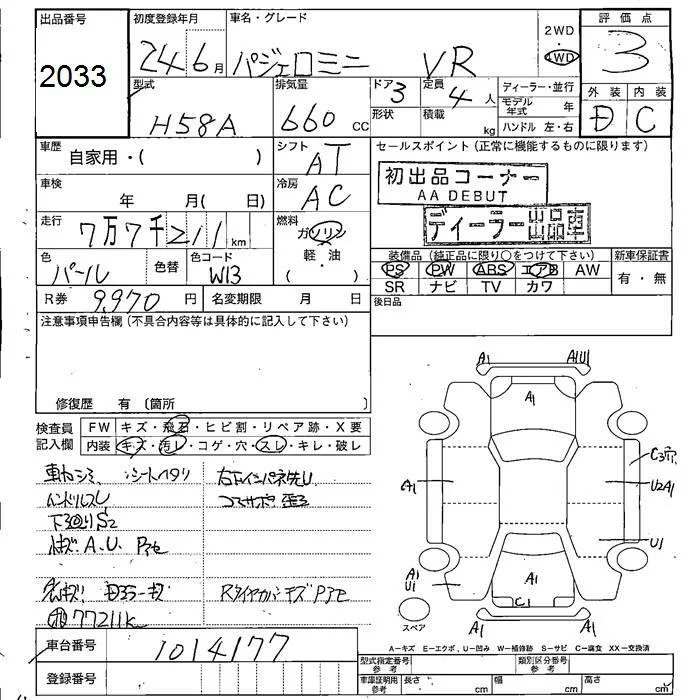 出品番号 初度登録年月 車名・グレード 2WD 評価点
2033 24 6月 パジェロミニ VR 4WD 3
型式 排気量 ドア 3 定員 4人 ディーラー・並行 外装 内装
H58A 660 CC 形状 積載 kg モデル年式 年 D C
ハンドル 左・右
車歴 自家用・( ) シフト AT セールスポイント(正常に機能するものに限ります)
車検 年 月( 日) 冷房 AC 初出品コーナー
AA DEBUT
走行 7万7千211km 燃料 ガソリン ディーラー出品車
軽・油
( )
色 パール 色替 色コード W13 装備品(純正品に限り○をつけて下さい) 新車保証書
PS PW ABS エアB AW 有・無
SR ナビ TV カワ
R券 9,970円 名変期限 月 日 後日品
注意事項申告欄(不具合内容等は具体的に記入して下さい)
修復歴 有 〔箇所 〕
検査員 FW キズ・飛石・ヒビ割・リペア跡・X要
記入欄 内装 キズ・汚レ・コゲ・穴・スレ・キレ・破レ
シートヘタリ
ハンドルスレ
下回りS2
小キズ.A.U.
77211k
A1 A1U1
A1
C3穴
A1 U2A1
U1
A1
U1 A1
C1
A1 A1
スペア
A-キズ E-エクボ,U-凹み W-補修跡 S-サビ C-腐食 XX-交換済
車台番号 1014177 型式指定番号 参考 類別区分番号 参考
登録番号 車庫証明用 参考 長さ cm 幅 cm 高さ cm